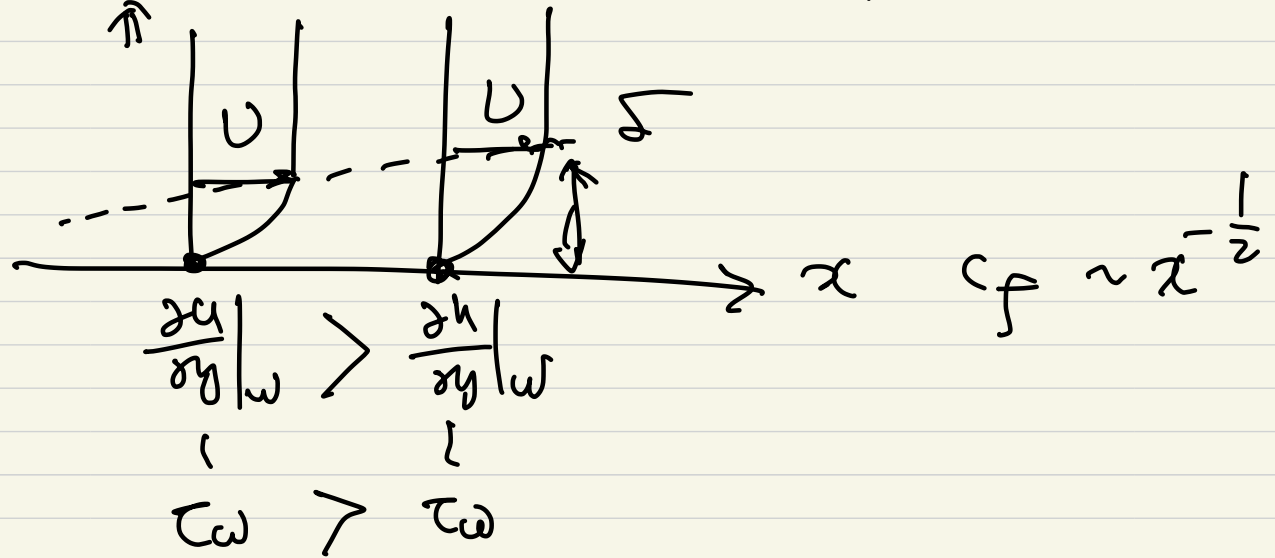 U U δ
x c_f ~ x^{-1/2}
∂u/∂y|w > ∂u/∂y|w
τw > τw